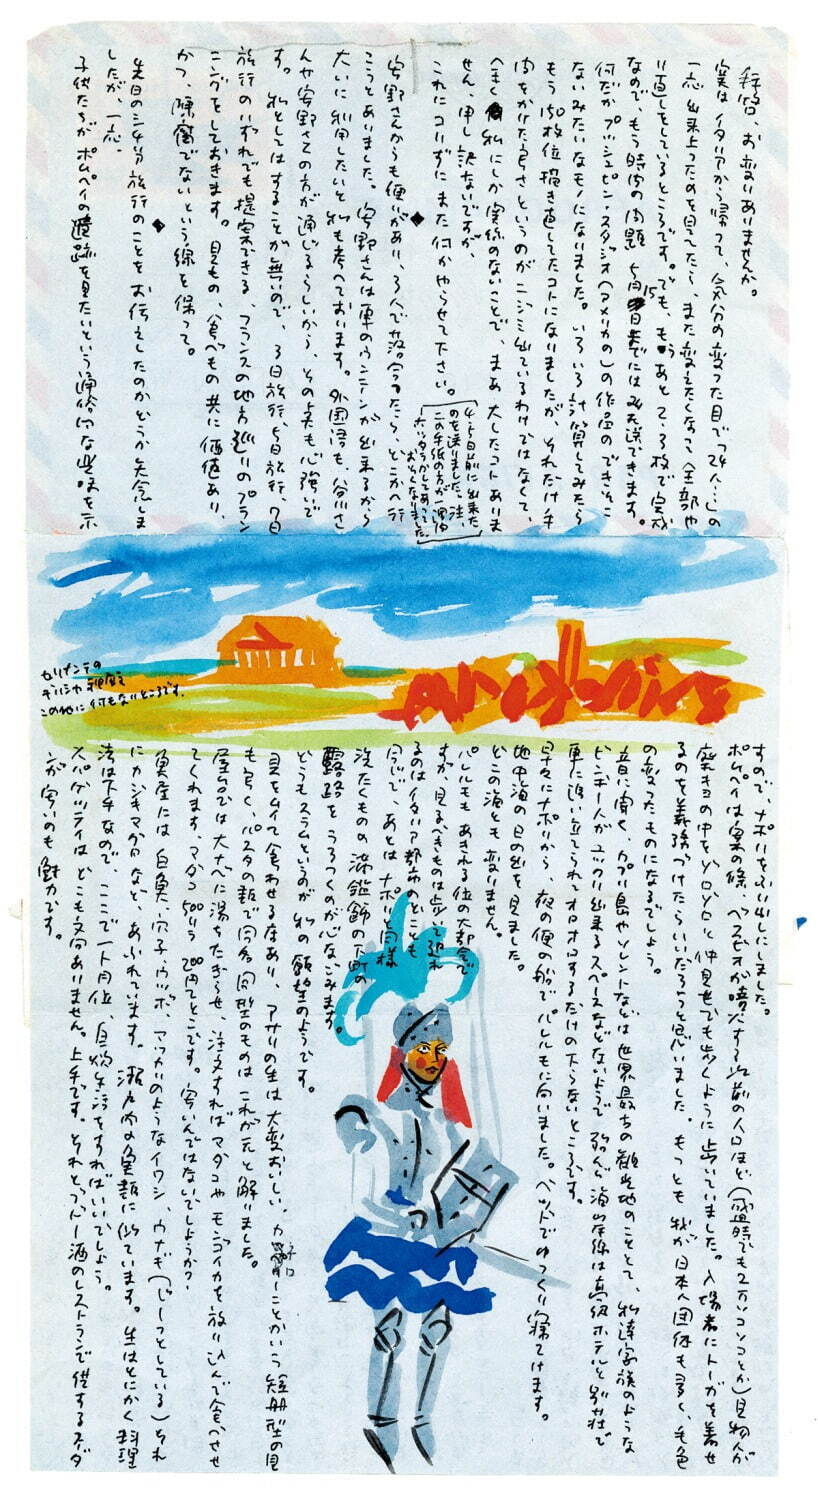 拝啓、お変りありませんか。
実はイタリアから帰って、気分の変った目で「24人…」の
一応出来上ったのを見てたら、また変えたくなって全部や
り直しをしているところです。でも、もうあと2、3枚で完成
なので、もう時間の問題 5月15日までにはみな送できます。
何だかプッシュピン・スタジオ(アメリカの)の作品のできそこ
ないみたいなモノになりました。いろいろ計算してみたら
もう150枚位描き直してたコトになりましたが、それだけ手
間をかけた良さというのがニジミ出ているわけではなくて、
私にしか関係のないことで、まあ大したコトありま
せん、申し訳ないですが、
これにコリずにまた何かやらせて下さい。
4、5日前に出来た
のを送りました。注、
この手紙の方が一週間
おそくなりました。
◆
安野さんからも便りがあり、3人で落合ったら、どこかへ行
こうとありました。安野さんは車のウンテンが出来るから
大いに利用したいと私も考えております。外国語も、谷川さ
んや安野さんの方が通じるらしいから、その点も心強いで
す。私としてはすることが無いので、3日旅行、5日旅行、7日
旅行のいずれでも提案できる、フランスの地方巡りのプラン
ニングをしておきます。見もの、食べもの共に価値あり、
かつ、陳腐でないという線を保って。
◆
先日のシチリア旅行のことをお伝えしたのかどうか失念しま
したが、一応。
子供たちがポムペイの遺跡を見たいという通俗的な興味を示
セリヌンテの
ギリシャ神殿
この他に何もないところです。
すので、ナポリをふり出しにしました。
ポムペイは案の條、ベスビオが噴火する以前の人口ほど(盛時でも2万コソコソとか)見物人が
廃キョの中をゾロゾロと仲見世でも歩くように歩いていました。入場者にトーガを着せ
るのを義務づけたらいいだろうと思いました。もっとも我が日本人団体も多く、毛色
の変ったものになるでしょう。
音に聞く、カプリ島やソレントなどは世界最古の観光地のこととて、私達家族のような
ビンボー人がユックリ出来るスペースなどないようで 海岸線は高級ホテルと別荘で
車に追い立てられてオロオロするだけの下らないところです。
早々にナポリから、夜の便の船でパレルモに向いました。ベッドでゆっくり寝てけます。
地中海の日の出を見ました。
どこの海とも変りません。
パレルモもあきれる位の大都会で
すが、見るべきものは歩いて廻れ
るのはイタリア都市のどことも
同じで、あとはナポリと同様
洗たくものの満艦飾の下町の
露路をうろつくのが心なごみます。
どうもスラムというのが私の願望のようです。
貝をムイて食わせる店あり、アサリの生は大変おいしい。 ことかいう短冊型の貝
も良く、パスタの類で同名同型のものはこれが元と解りました。
屋台では大ナベに湯をたぎらせ、注文すればマダコやモンゴイカを放り込んで食べさせ
てくれます。マダコ500リラ200円てとこです。安いんではないでしょうか？
魚屋には白魚、穴子、ウツボ、マッカリのようなイワシ、ウナギ(じーっとしている)それ
にカジキマグロなど、あふれています。瀬戸内の魚類に似ています。生はとにかく料理
法は下手なので、ここで一ト月位、自炊生活をすればいいでしょう。
スパゲッティはどこも文句ありません。上手です。それとブドー酒のレストランで供するタダ
が安いのも魅力です。